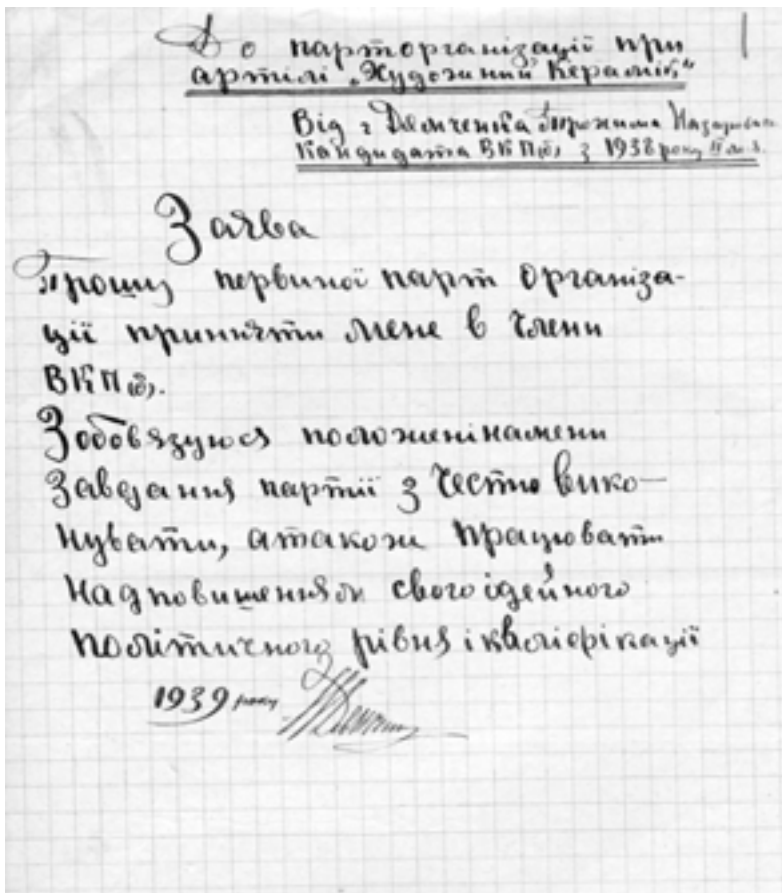 До парторганізації при
артілі „Художний Керамік“
Від г Демченка Трохима Назаровича
Кандидата ВКП(б) з 1938 року
Заява
Прошу первиної парт організа-
ції приняти мене в Члени
ВКП(б).
Зобовязуюся положені на мени
Завдання партії з Честю вико-
нувати, атакож працювати
Над повишенням свого ідейного
політичного рівня і кваліфікації
1939 року